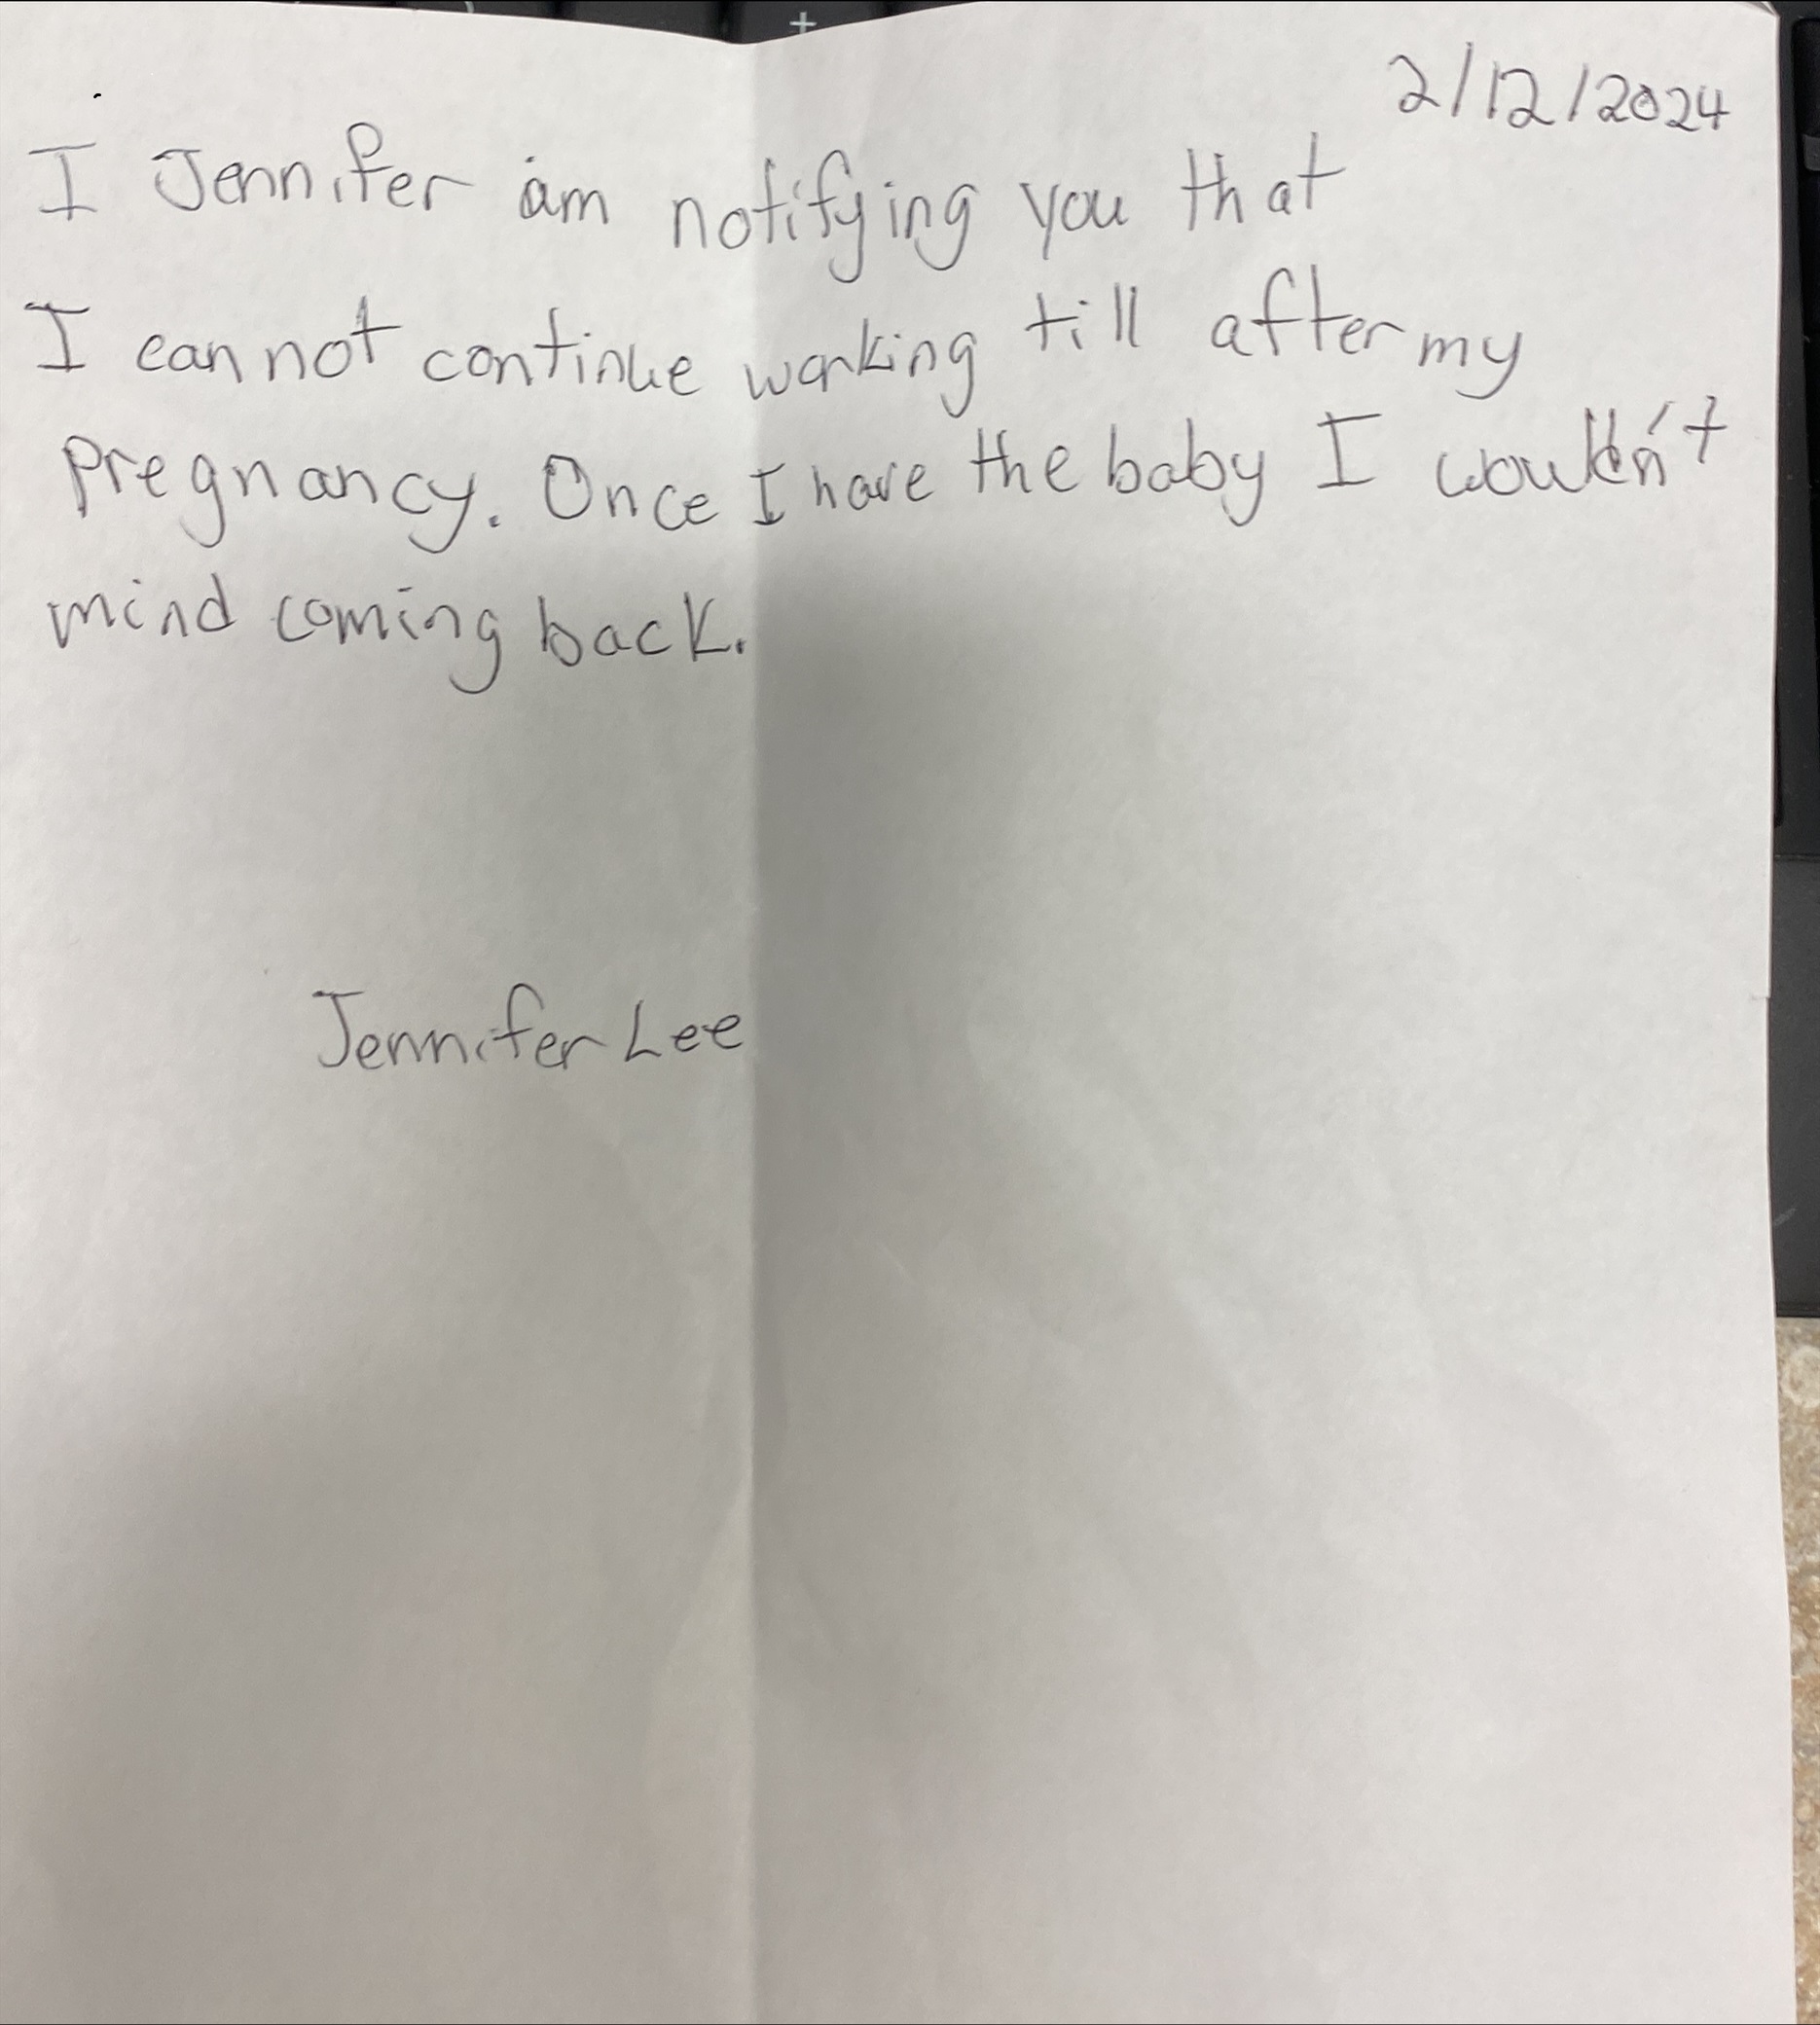 2/12/2024
I Jennifer am notifying you that
I cannot continue working till after my
pregnancy. Once I have the baby I wouldn't
mind coming back.
Jennifer Lee